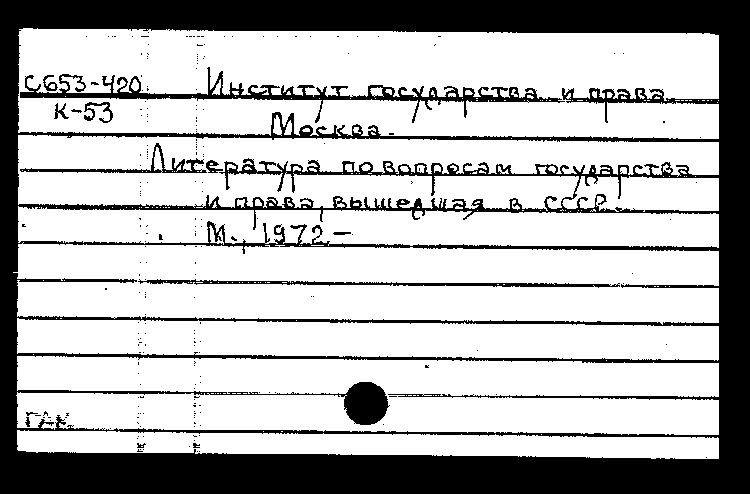 С653-420 Институт государства и права.
К-53
Москва.
Литература по вопросам государства
и права, вышедшая в СССР.
М., 1972 –
ГАК